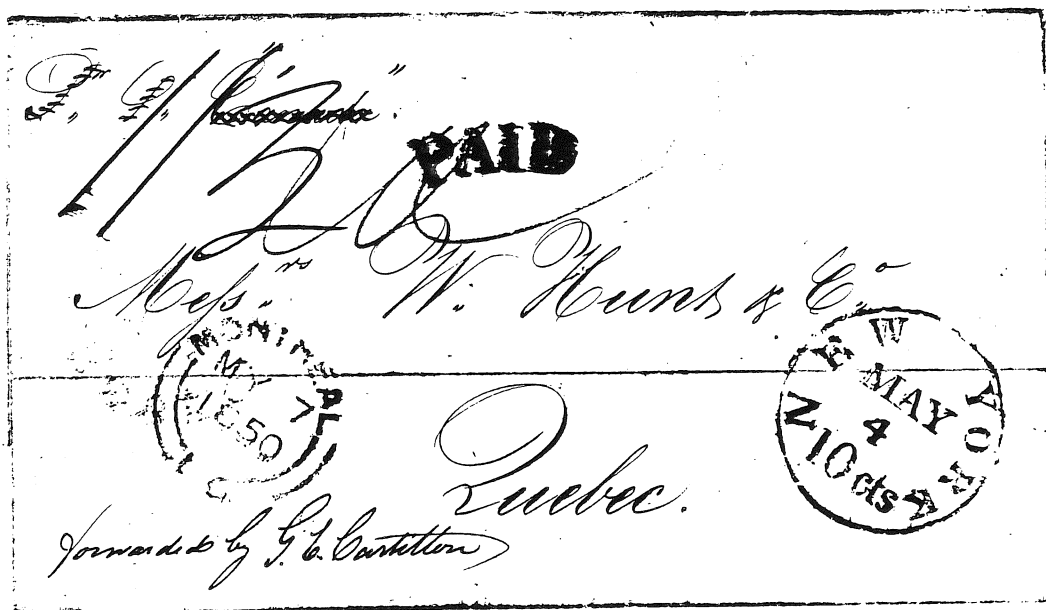 PAID
Mess.rs W. Hunt & Co.
MONTREAL
MY 7
1850
L C
NEW YORK
MAY
4
10 cts
Quebec.
forwarded by G. C.